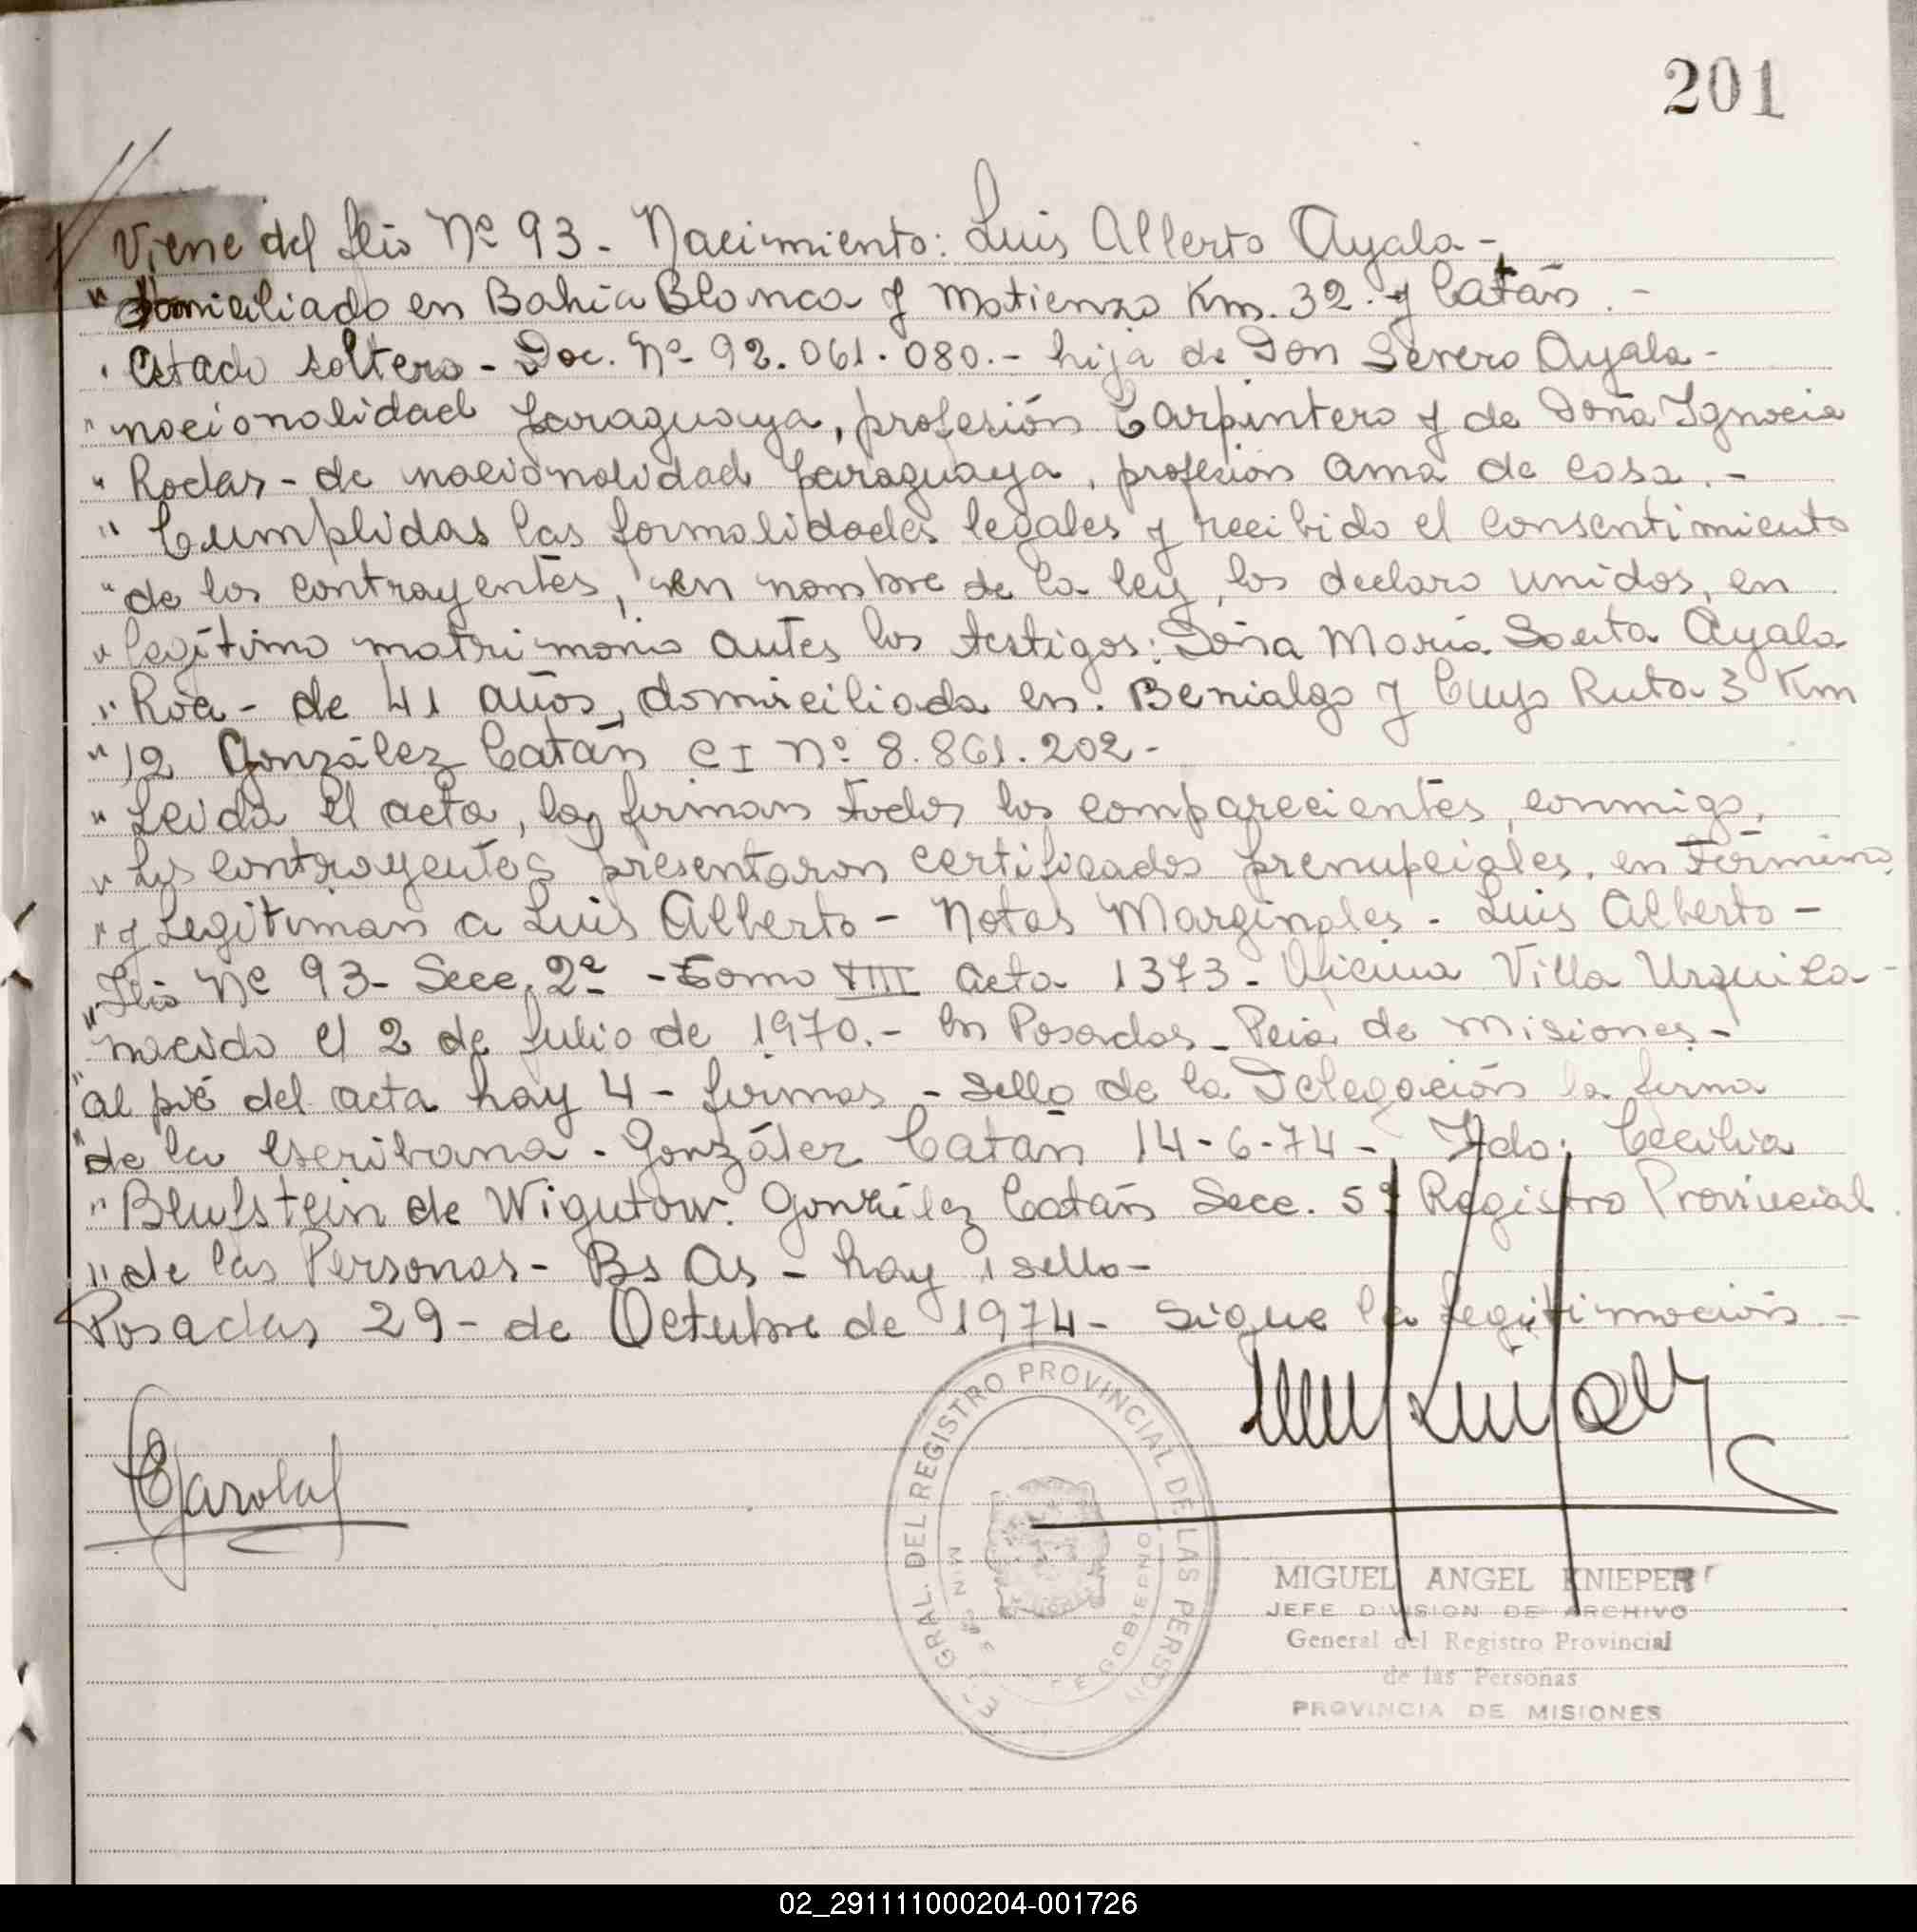 201
Viene del flio Nº 93 - Nacimiento: Luis Alberto Ayala -
" Domiciliado en Bahia Blanca y Matienzo Km. 32. y Catán. -
" Estado soltera - Doc. Nº 92.061.080. - hija de Don Severo Ayala -
" nacionalidad paraguaya, profesión Carpintero y de Doña Ignacia
" Rodas - de nacionalidad paraguaya, profesión ama de casa. -
" Cumplidas las formalidades legales y recibido el consentimiento
" de los contrayentes, en nombre de la ley, los declaro unidos, en
" legítimo matrimonio antes los testigos: Doña María Ayala
" Roa - de 41 años, domiciliada en. y Cuyo Ruta 3 Km
" 12 González Catán CI Nº 8.861.202 -
" Leida el acta, la firman todos los comparecientes, conmigo,
" Los contrayentes presentaron certificados prenupciales, en Término
" y Legitiman a Luis Alberto - Notas Marginales - Luis Alberto -
" flio Nº 93 - Secc. 2ª - Tomo VIII acta 1373 - Oficina Villa Urquiza -
" nacido el 2 de Julio de 1970. - en Posadas - Pcia de Misiones -
" al pié del acta hay 4 - firmas - sello de la Delegación la firma
" de la escribana - González Catán 14-6-74 - Fdo: Cecilia
" de Wigutow. González Catán Secc. 5ª Registro Provincial
" de las Personas - Bs As - hay 1 sello -
Posadas 29 - de Octubre de 1974 - sigue la legitimación. -
GRAL. DEL REGISTRO PROVINCIAL DE LAS PERSON
DE GOBIERNO
MIGUEL ANGEL KNIEPER
JEFE DIVISION DE ARCHIVO
General del Registro Provincial
de las Personas
PROVINCIA DE MISIONES
02_291111000204-001726